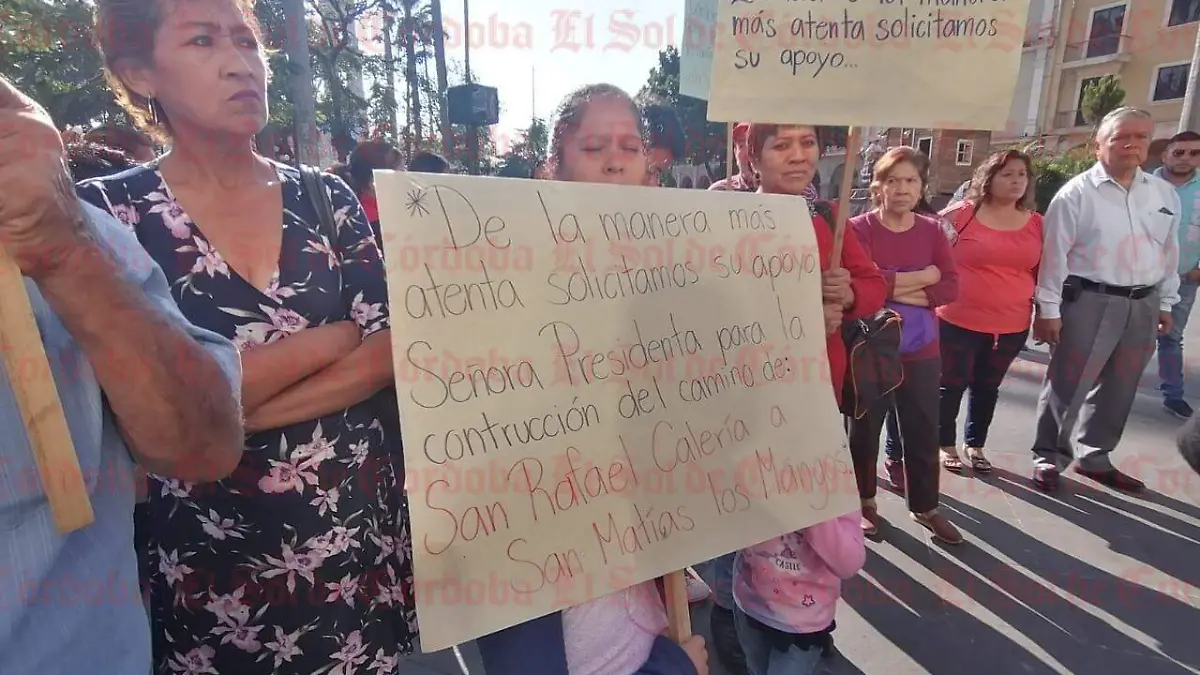 más atenta solicitamos
su apoyo...
* De la manera más
atenta solicitamos su apoyo
Señora Presidenta para la
contrucción del camino de:
San Rafael Calería a
San Matías los Mangos.
CASTLE
El Sol de Córdoba